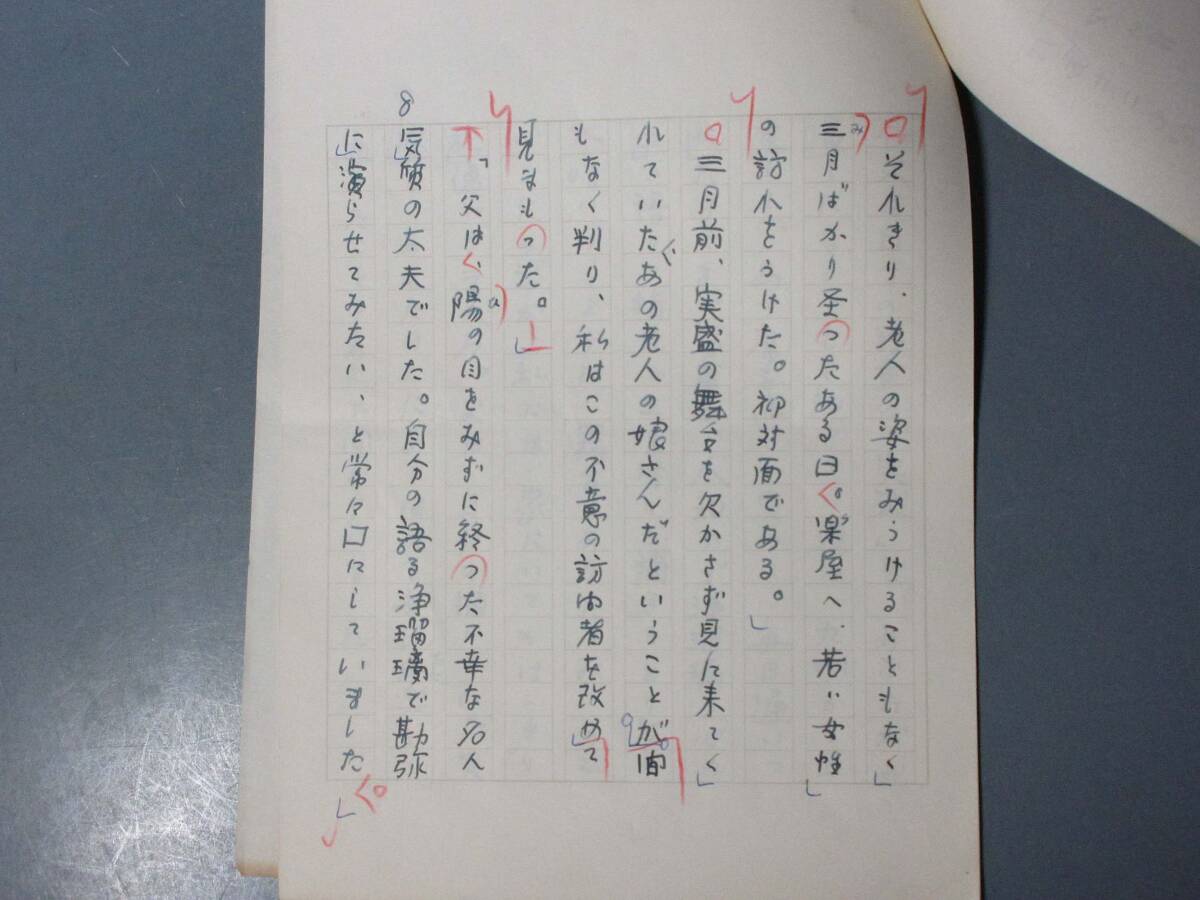 それきり、老人の姿をみうけることもなく
三月ばかり圣ったある日。楽屋へ、若い女性
の訪れをうけた。初対面である。
三月前、実盛の舞台を欠かさず見に来てく
れていたあの老人の娘さんだということが間
もなく判り、私はこの不意の訪問者を改めて
見まもった。
「父は、陽の目をみずに終った不幸な名人
気質の太夫でした。自分の語る浄瑠璃で勘弥
に演らせてみたい、と常々口にしていました
8